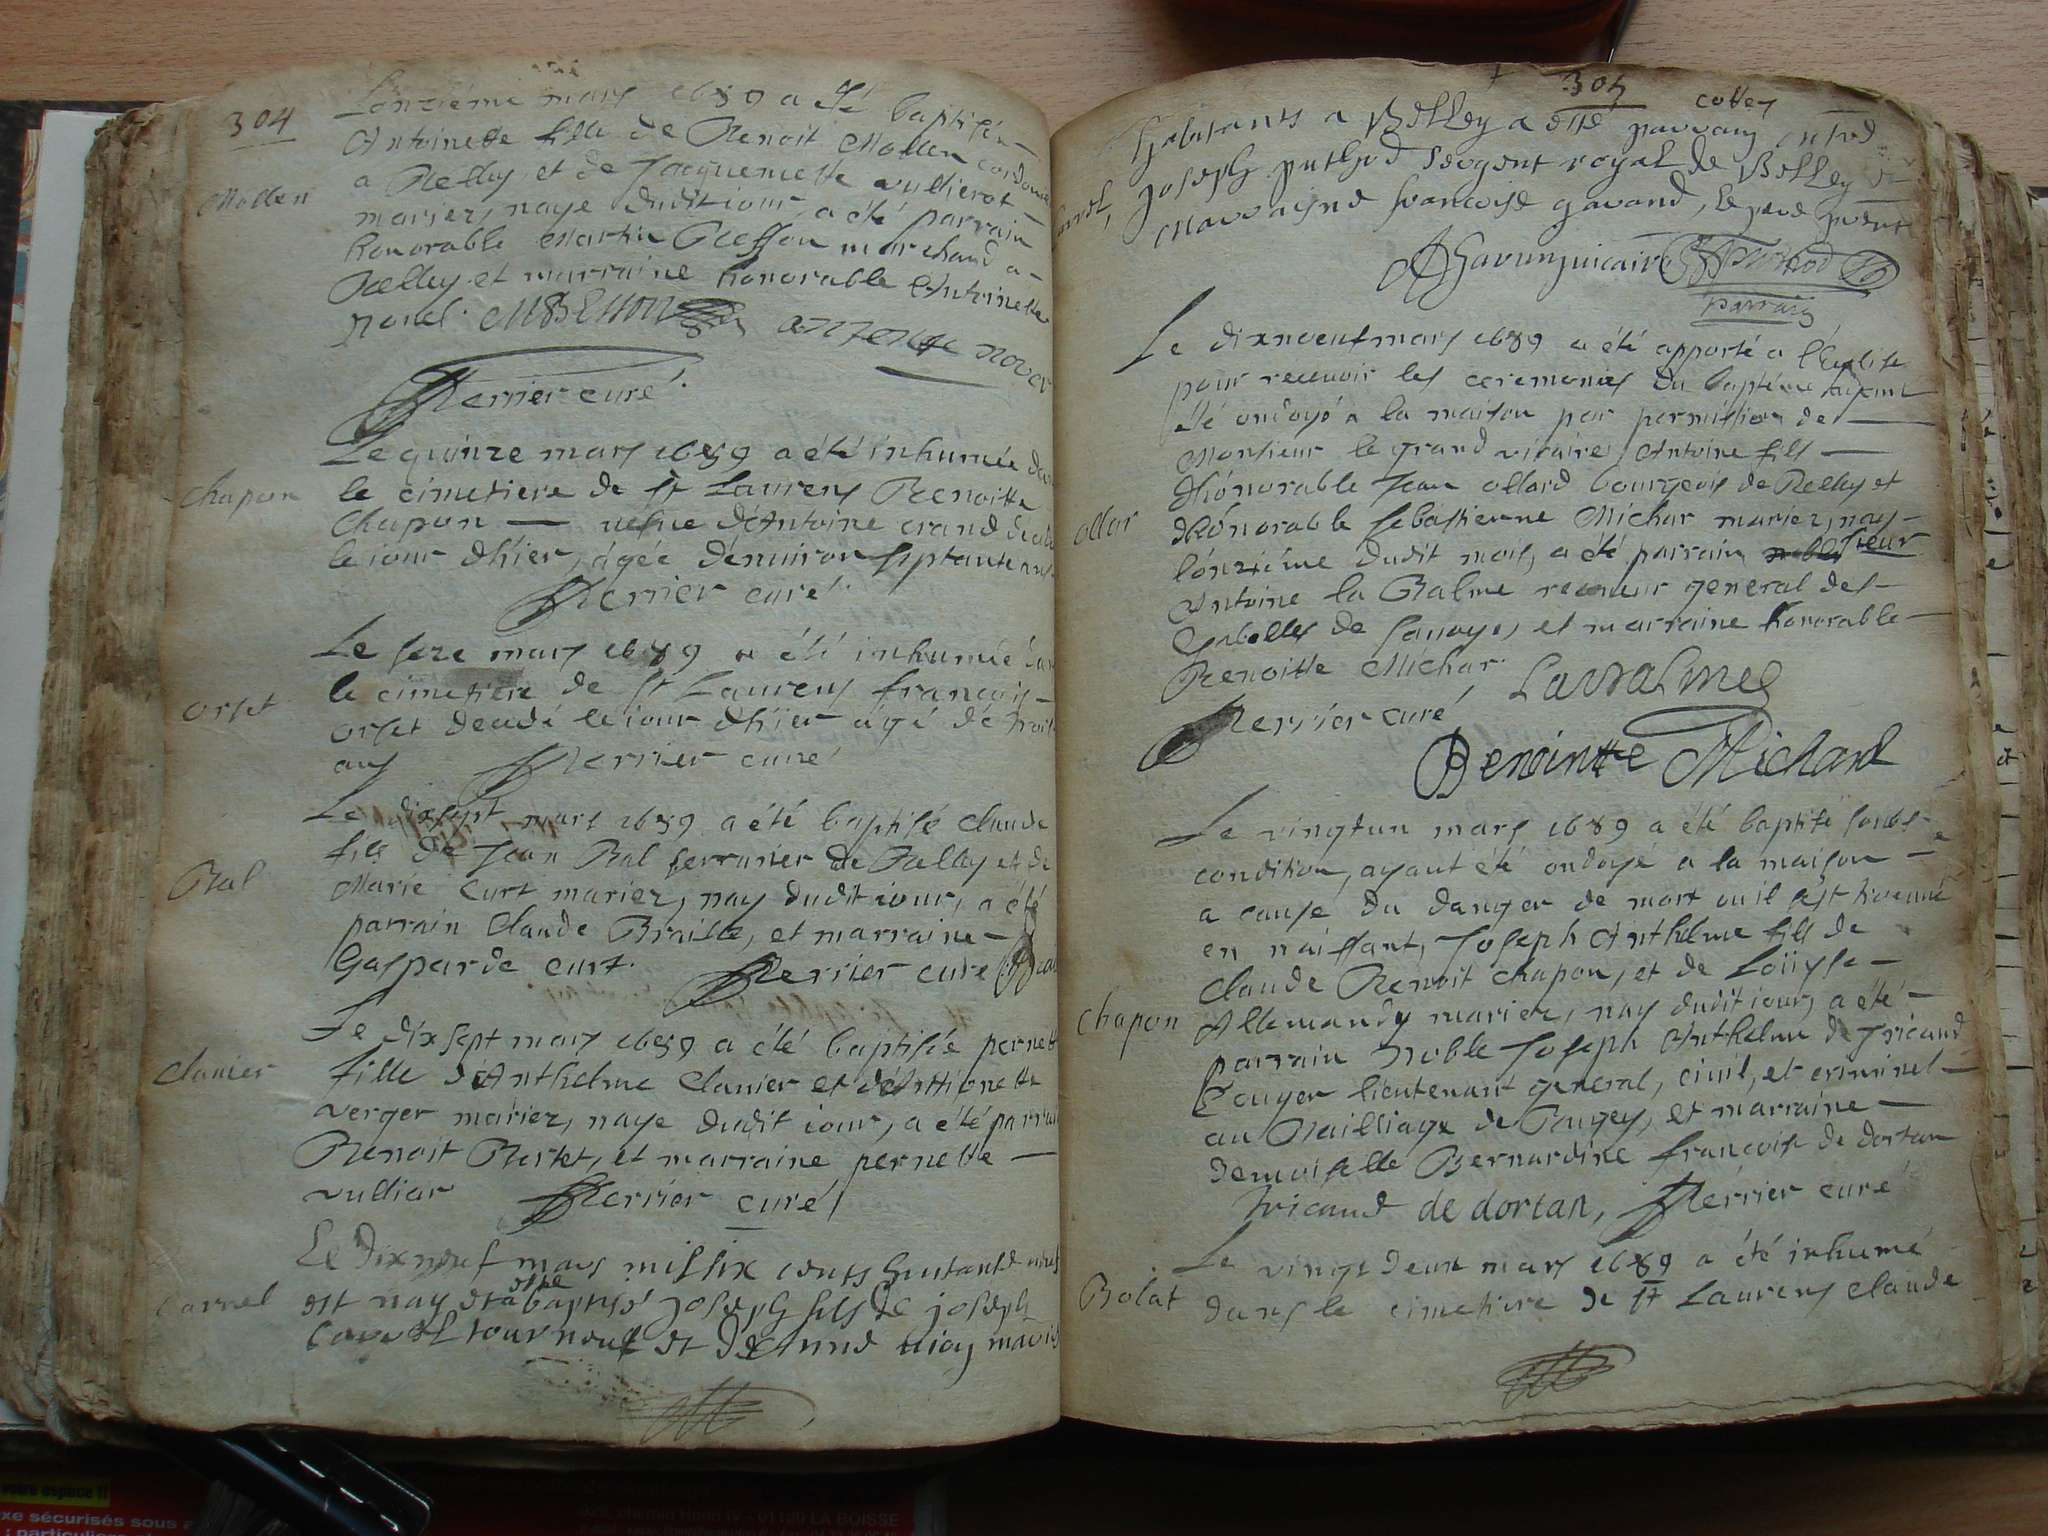 304
Lonziéme mars 1689 a été baptisée
Antoinette fille de Benoit Mollen cordonnier
a Belley, et de Jacquemette vullierot
Mollen
mariez, naye dudit iour, a été parrain
honorable Martin Besson marchand a
Belley et marraine honorable Antoinette
MBESSON
Perrier curé
Le quinze mars 1689 a été inhumée dans
chapon
le cimetiere de st Laurens Benoitte
Chapon — vefue d'Antoine
le iour d'hier, agée d'enuiron septante ans
Perrier curé
Le seze mars 1689 a été inhumée dans
le cimetiere de st Laurens françois
orset
orset decedé le iour d'hier agé de
ans Perrier curé
Le dixsept mars 1689 a été baptisé claude
fils de Jean Bal serrurier de Belley et de
Bal
Marie curt mariez, nay dudit iour, a été
parrain Claude Braille, et marraine
Gasparde curt. Perrier curé
Le dixsept mars 1689 a été baptisée pernette
clanier
fille d'Anthelme clanier et d'Antoinette
verger mariez, naye dudit iour, a été parrain
Benoit et marraine pernette
vulliar Perrier curé
Le dixneuf mars mil six cents huitante neuf
carrel
est nay et a este baptisé joseph fils de joseph
Carrel tourneur et de anne mariés
305
habitants a Belley a esté parrain
joseph puthod sergent royal de Belley et
Marrayne francoise gavand, le pere
vicaire Puthod
parrain
Le dixneuf mars 1689 a été apporté a l'Eglise
pour receuoir les ceremonies du baptême ayant
été ondoyé a la maison par permission de
Monsieur le grand vicaire, Antoine fils
d'honorable Jean ollard bourgeois de Belley et
ollar
d'honorable sebastienne Michar mariez, nay
l'onziéme dudit mois, a été parrain sieur
Antoine la Balme receueur general des
Gabelles de sauoye, et marraine honorable
Benoitte Michar. Labalme
Perrier curé
Benointte Michard
Le vingtun mars 1689 a été baptisé soubs
condition, ayant été ondoyé a la maison
a cause du danger de mort ou il s'est trouué
en naissant, Joseph Anthelme fils de
claude Benoit chapon, et de Loüyse
chapon
Allemandy mariez, nay dudit iour, a été
parrain noble Joseph Anthelme de Tricaud
Ecuyer lieutenant general, ciuil, et criminel
au Bailliage de Bugey, et marraine
demoiselle Bernardine françoise de dortan
Tricaud de dortan, Perrier curé
Le vingt deux mars 1689 a été inhumé
Bolat
dans le cimetiere de st Laurens claude